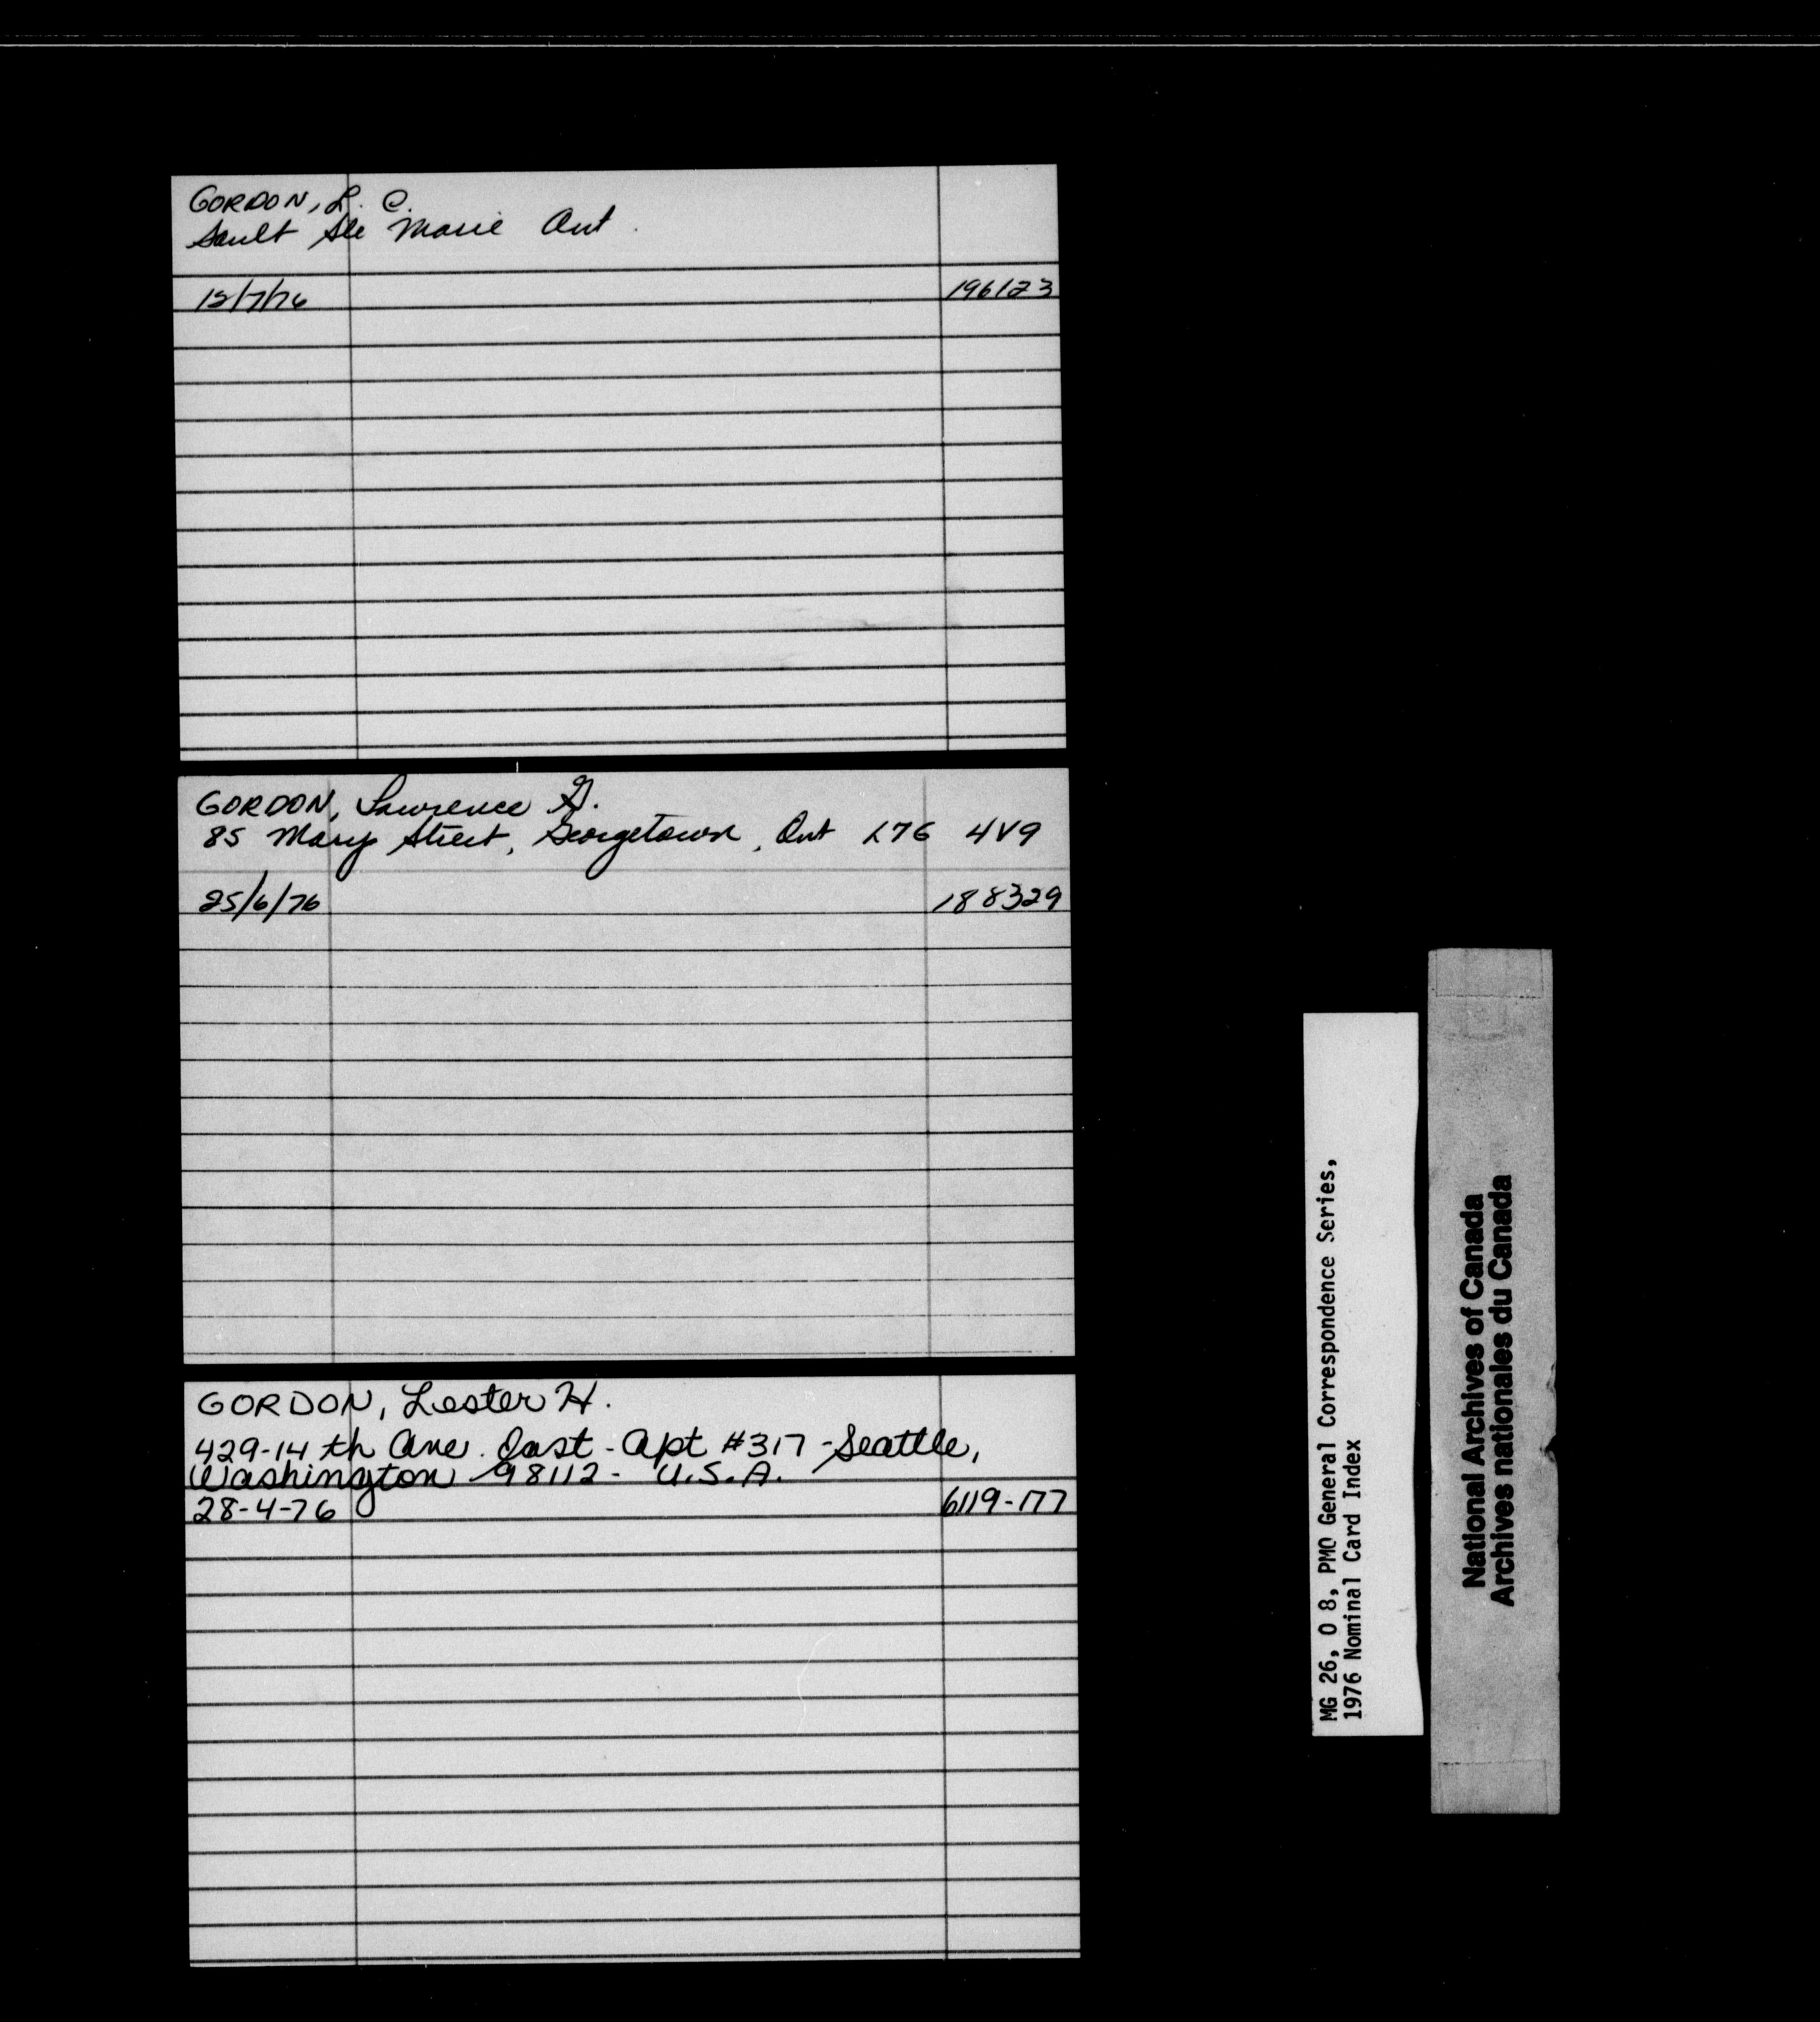 GORDON, L. C.
Sault Ste Marie Ont.
12/7/76 196123
GORDON, Lawrence G.
85 Mary Street, Georgetown, Ont L7G 4V9
25/6/76 188329
GORDON, Lester H.
429-14th Ave. East - Apt #317 - Seattle,
Washington 98112 - U.S.A.
28-4-76 6119-177
MG 26, O 8, PMO General Correspondence Series,
1976 Nominal Card Index
National Archives of Canada
Archives nationales du Canada